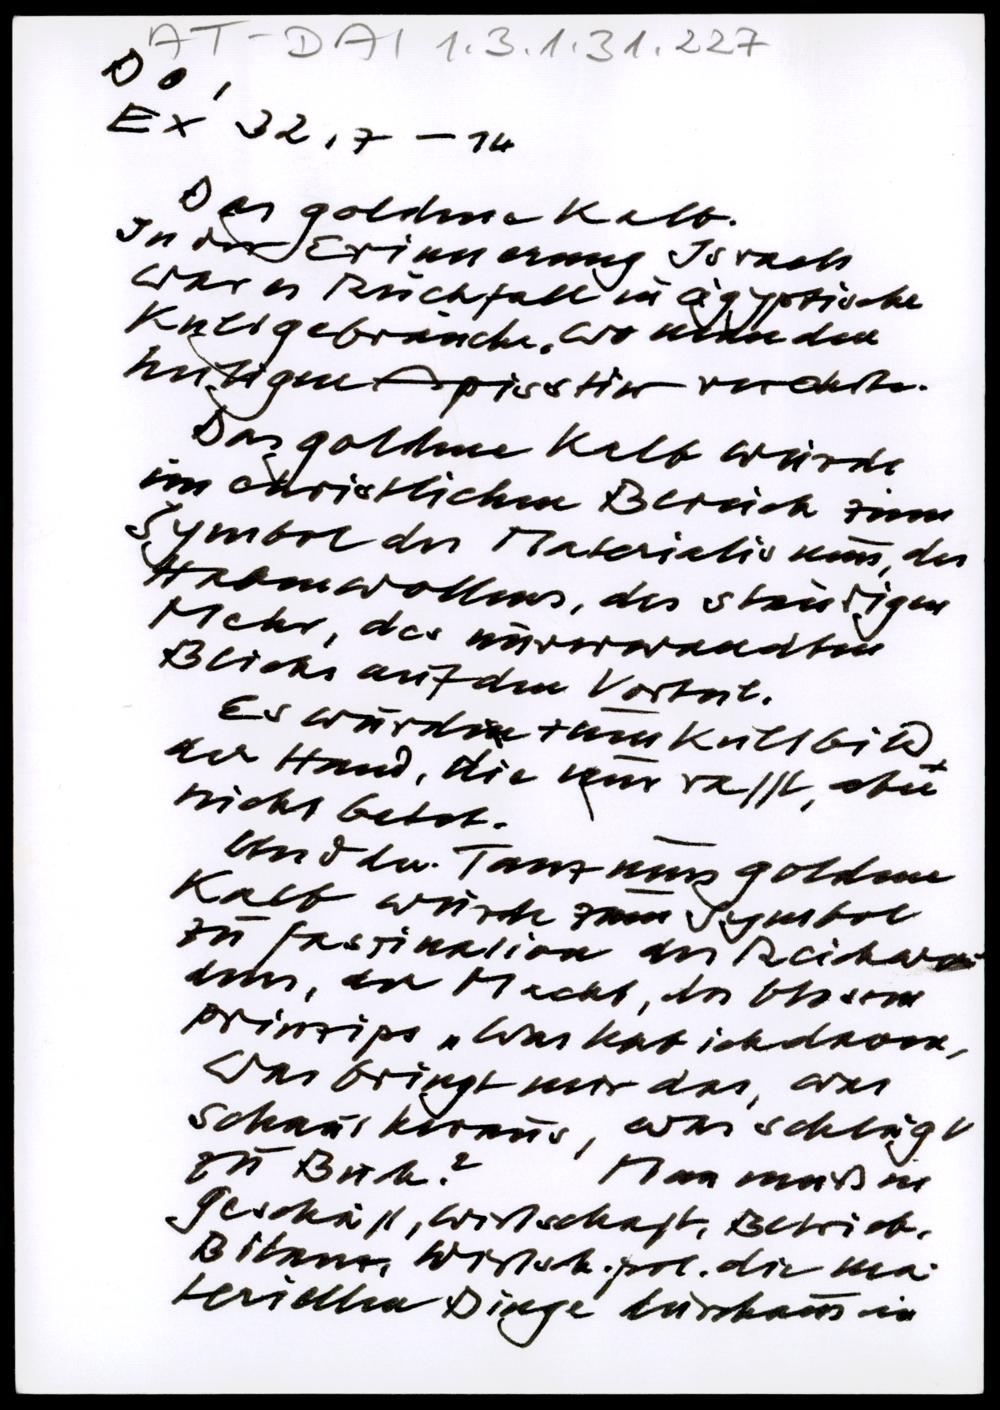 AT-DAI 1.3.1.31.227
Do,
Ex 32,7-14
Das goldene Kalb.
In der Erinnerung Israels
war es Rückfall in ägyptische
Kultgebräuche, wo man den
heiligen Apisstier verehrte.
Das goldene Kalb wurde
im christlichen Bereich zum
Symbol des Materialismus, des
Habenwollens, des ständigen
Mehr, des unverwandten
Blicks auf den Vorteil.
Es wurde zum Kultbild
der Hand, die nur rafft, aber
nicht betet.
Und der Tanz ums goldene
Kalb wurde zum Symbol
zu Faszination des Reichwer-
dens, der Macht, des blossen
Prinzips „Was hab ich davon,
Was bringt mir das, was
schaut heraus, was schlägt
zu Buch?" Man muß in
Geschäft, Wirtschaft, Betrieb,
Bilanz, Wirtsch.pol. die ma-
teriellen Dinge durchaus in